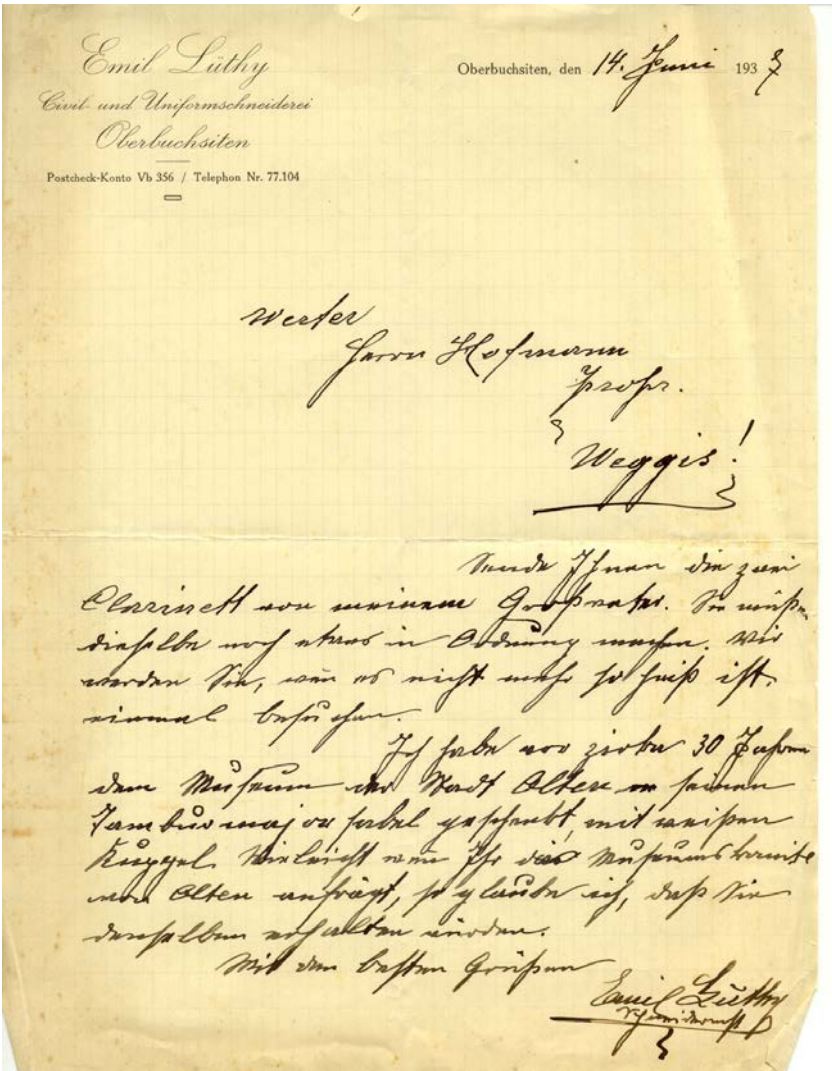 Emil Lüthy
Civil- und Uniformschneiderei
Oberbuchsiten
Postcheck-Konto Vb 356 / Telephon Nr. 77.104
Oberbuchsiten, den 14. Juni 1937
Werter
Herrn Hofmann
Weggis!
Sende Ihnen die zwei
Clarinett von meinem Großvater. Sie müße
dieselbe noch etwas in Ordnung machen. Wir
werden Sie, wen es nicht mehr so heiß ist,
einmal besuchen.
Ich habe vor zirka 30 Jahren
dem Museum der Stadt Olten seinen
Tambur major sabel geschenkt, mit weißen
Kuppel. Vieleicht wen Ihr das Museums
von Olten anfrägt, so glaube ich, daß Sie
denselben erhalten würden.
Mit den besten Grüßen
Emil Lüthy